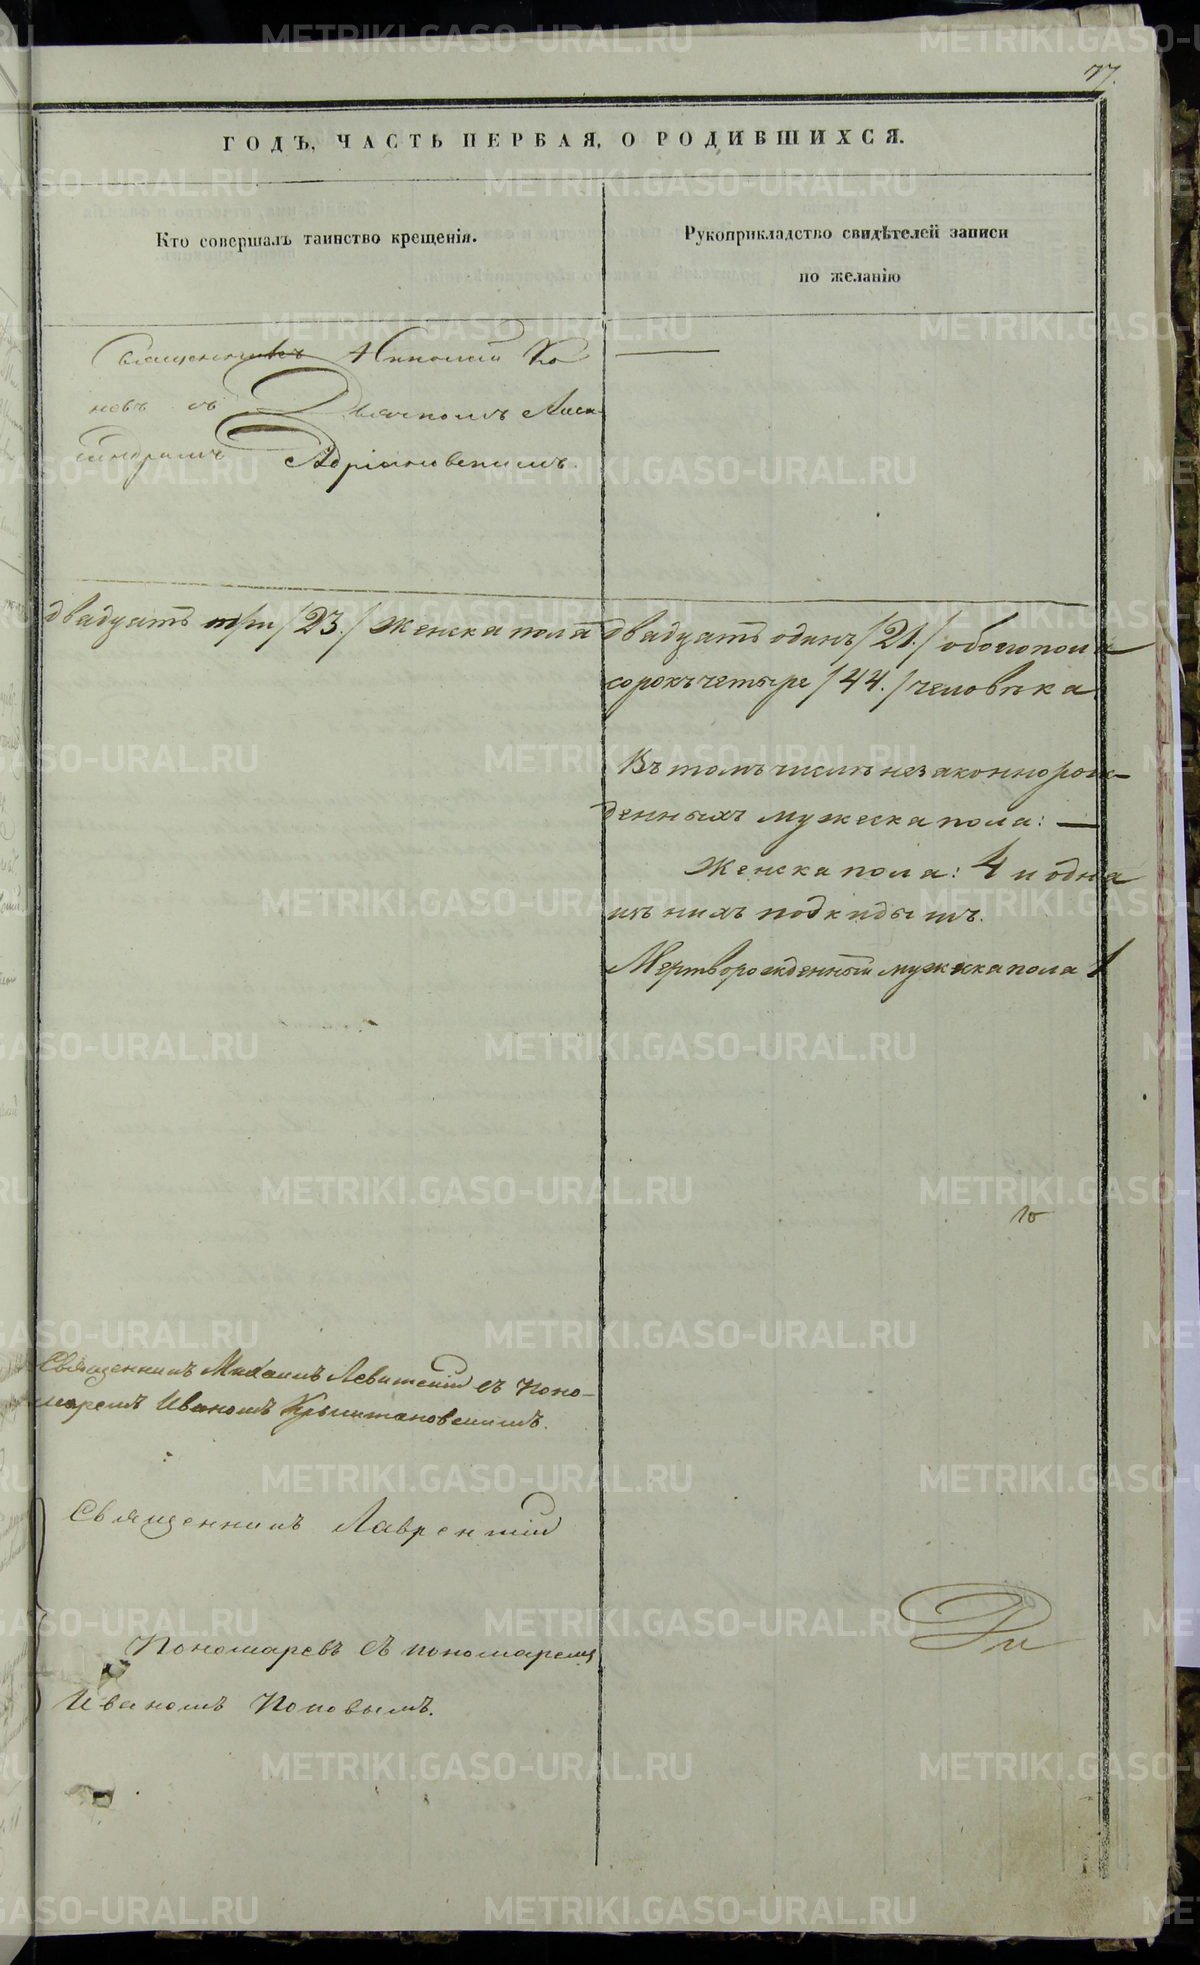 77.
ГОДЪ, ЧАСТЬ ПЕРВАЯ, О РОДИВШИХСЯ.
Кто совершалъ таинство крещенія.
Рукоприкладство свидѣтелей записи
по желанію
Священникъ Ко
невъ съ Дьячкомъ Алек
сандромъ Адріановскимъ.
двадцать три /23./ женска пола двадцать одинъ /21./ обоего пола
сорокъ четыре /44./ человѣка.
Въ томъ числѣ незаконнорож-
денныхъ мужеска пола: —
Женска пола: 4 и одна
изъ нихъ подкидышъ.
Мертворожденный мужеска пола 1
Священникъ Михаилъ Левитскій съ Поно-
маремъ Иваномъ
Священникъ Лаврентій
Пономаревъ съ пономаремъ
Иваномъ Поповымъ.
METRIKI.GASO-URAL.RU